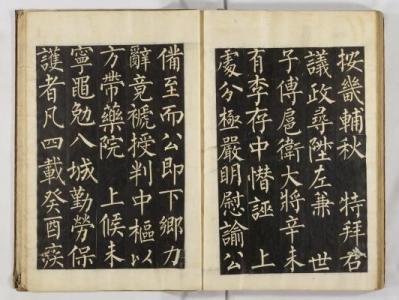 按畿輔秋 特拜右
議政尋陞左兼 世
子傅扈衛大將辛未
有李存中憯誣 上
處分極嚴明慰諭公
備至而公即下鄉力
辭竟褫授判中樞以
方帶藥院 上候未
寧黽勉入城勤勞保
護者凡四載癸酉疾